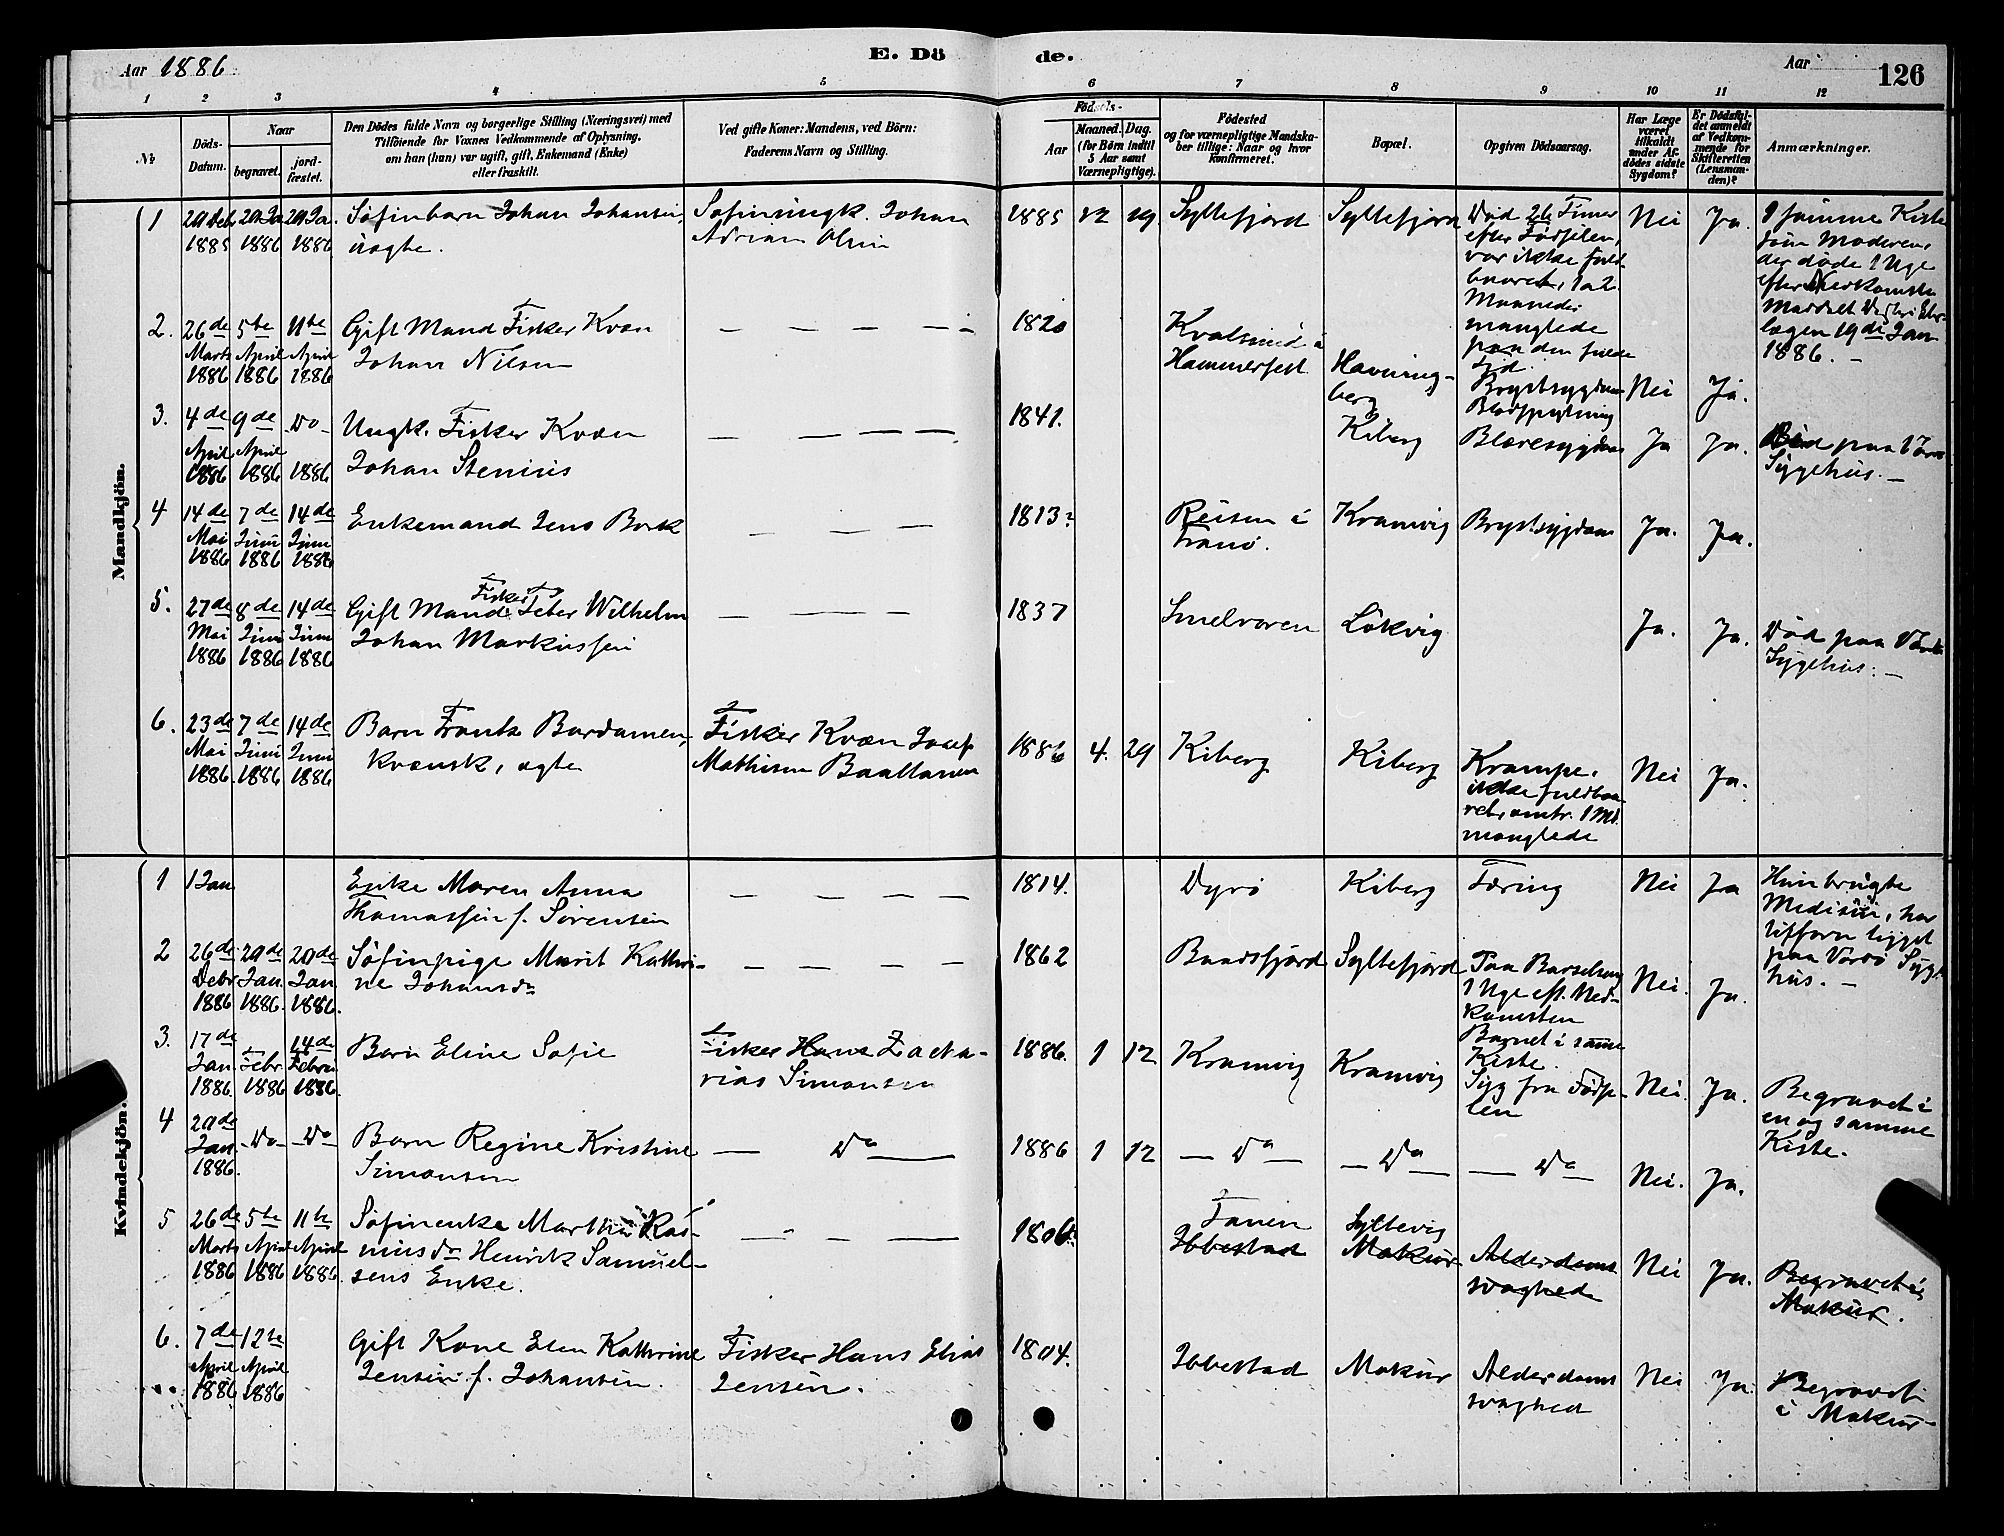 Aar 1886
E. Dö de.
Aar 126
1 2 3 4 5 6 7 8 9 10 11 12
№
Döds-
Datum.
Naar
begravet.
jord-
fæstet.
Den Dödes fulde Navn og borgerlige Stilling (Næringsvei) med
Tilföiende for Voxnes Vedkommende af Oplysning,
om han (hun) var ugift, gift, Enkemand (Enke)
eller fraskilt.
Ved gifte Koner: Mandens, ved Börn:
Faderens Navn og Stilling.
Födsels-
Aar
Maaned. Dag.
(for Börn indtil
5 Aar samt
Værnepligtige).
Födested
og for værnepligtige Mandska-
ber tillige: Naar og hvor
konfirmeret.
Bopæl.
Opgiven Dödsaarsag.
Har Læge
været
tilkaldt
under Af-
dödes sidste
Sygdom?
Er Dödsfal-
det anmeldt
af Vedkom-
mende for
Skifteretten
(Lensman-
den)?
Anmærkninger.
Mandkjön.
1
1885 1886 1886
Søfinbarn Johan Johansen,
uægte.
Søfinungk. Johan
Adrian Olsen
1885 12 19 Syltefjord Syltefjord
Død 26 Timer
efter Fødselen,
var ikke fuld-
baaret, 1 a 2
Maaneder
manglede
paa den fulde
Tid.
Nei Ja.
I samme Kiste
som Moderen,
der døde 1 Uge
efter Nedkomsten
19de Jan
1886. –
2. 26de 5te 11te
Marts April April
1886 1886 1886
Gift Mand Fisker Kvæn
Johan Nilsen
– – – – –
1820
Kvalsund i
Hammerfest
Havning-
berg
Brystsygdom
Blodspytning
Nei Ja.
3. 4de 9de Do
April April
1886 1886 1886
Ungk. Fisker Kvæn
Johan Stenius
– – – –
1841.
Kiberg Blæresygdom Ja Ja.
Død paa Vardø
Sygehus. –
4 14de 7de 14de
Mai Juni Juni
1886 1886 1886
Enkemand Jens Bork
– – –
1813?
Reisen i
Tranø.
Kramvig Brystsygdom Ja. Ja.
5. 27de 8de 14de
Mai Juni Juni
1886 1886 1886
Fisker
Gift Mand Peter Wilhelm
Johan Markussen
– – –
1837 Smelroren Lökvig Ja. Ja.
Død paa Vardø
Sygehus. –
6. 23de 7de 14de
Mai Juni Juni
1886. 1886 1886
Barn Frants Bardamen,
kvænsk, ægte
Fisker Kvæn Josef
Mathisen Baaltanen
1886 4. 29 Kiberg Kiberg
Krampe,
ikke fuldbaa-
ret, omtr. 1 Md.
manglede
Nei Ja.
Kvindekjön.
1 1 Jan
Enke Maren Anna
Thomassen f. Sørensen
– – – –
1814. Dyrø Kiberg Tæring Nei Ja
Hun brugte
Medisin, har
tilforn ligget
paa Vardø Syge-
hus. –
2 26de 20de 20de
Debr Jan. Jan
1886 1886. 1886.
Søfinpige Marit Kathri-
ne Johansdr
– – – –
1862 Baadsfjord Syltefjord
Paa Barselseng
1 Uge eft. Ned-
komsten
Barnet i samme
Kiste.
Nei. Ja.
3. 17de 14de
Jan Febr Febru
1886. 1886 1886.
Barn Eline Sofie
Fisker Hans Zacha-
rias Simonsen
1886. 1 12 Kramvig Kramvig
Syg fra Fødse-
len
Nei. Ja.
Begravet i
en og samme
Kiste.
4 20de
Jan. Do Do
1886.
Barn Regine Kristine
Simonsen
– Do –
1886 1 12 – Do – – Do – – Do – Nei. Ja.
5 26de 5te 11te
Marts April April
1886 1886 1886.
Søfinenke Marthe Ras-
musdr Henrik Samuel-
sens Enke.
– – –
1806.
Tanen
Ibbestad
Syltevig
Makur
Alderdoms
svaghed
Nei Ja.
Begravet i
Makur.
6. 7de 12te
April April
1886 1886
Gift Kone Elen Kathrine
Jensen f. Johansen.
Fisker Hans Elias
Jensen.
1804. Ibbestad Makur
Alderdoms
svaghed
Nei Ja.
Begravet
i Makur